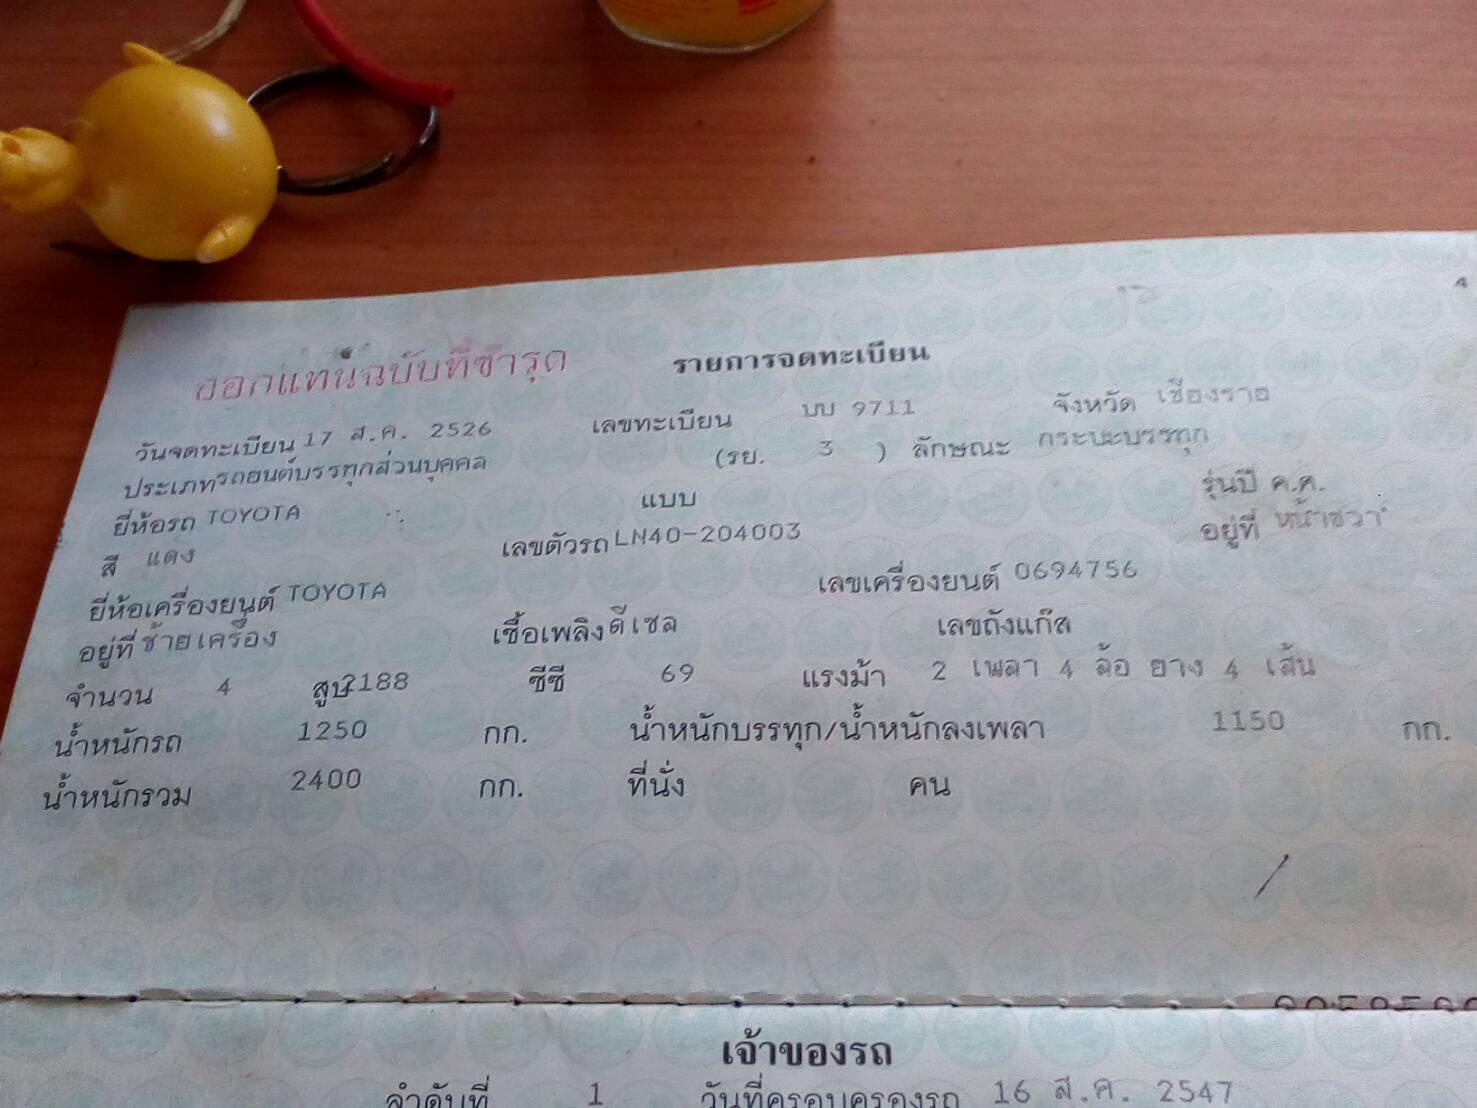 ออกแทนฉบับที่ชำรุด รายการจดทะเบียน
วันจดทะเบียน 17 ส.ค. 2526 เลขทะเบียน บบ 9711 จังหวัด เชียงราย
ประเภทรถยนต์บรรทุกส่วนบุคคล (รย. 3 ) ลักษณะ กระบะบรรทุก
ยี่ห้อรถ TOYOTA แบบ รุ่นปี ค.ศ.
สี แดง เลขตัวรถ LN40-204003 อยู่ที่ หน้าขวา
ยี่ห้อเครื่องยนต์ TOYOTA เลขเครื่องยนต์ 0694756
อยู่ที่ ซ้ายเครื่อง เชื้อเพลิง ดีเซล เลขถังแก๊ส
จำนวน 4 สูบ 2188 ซีซี 69 แรงม้า 2 เพลา 4 ล้อ ยาง 4 เส้น
น้ำหนักรถ 1250 กก. น้ำหนักบรรทุก/น้ำหนักลงเพลา 1150 กก.
น้ำหนักรวม 2400 กก. ที่นั่ง คน
เจ้าของรถ
ลำดับที่ 1 วันที่ครอบครองรถ 16 ส.ค. 2547